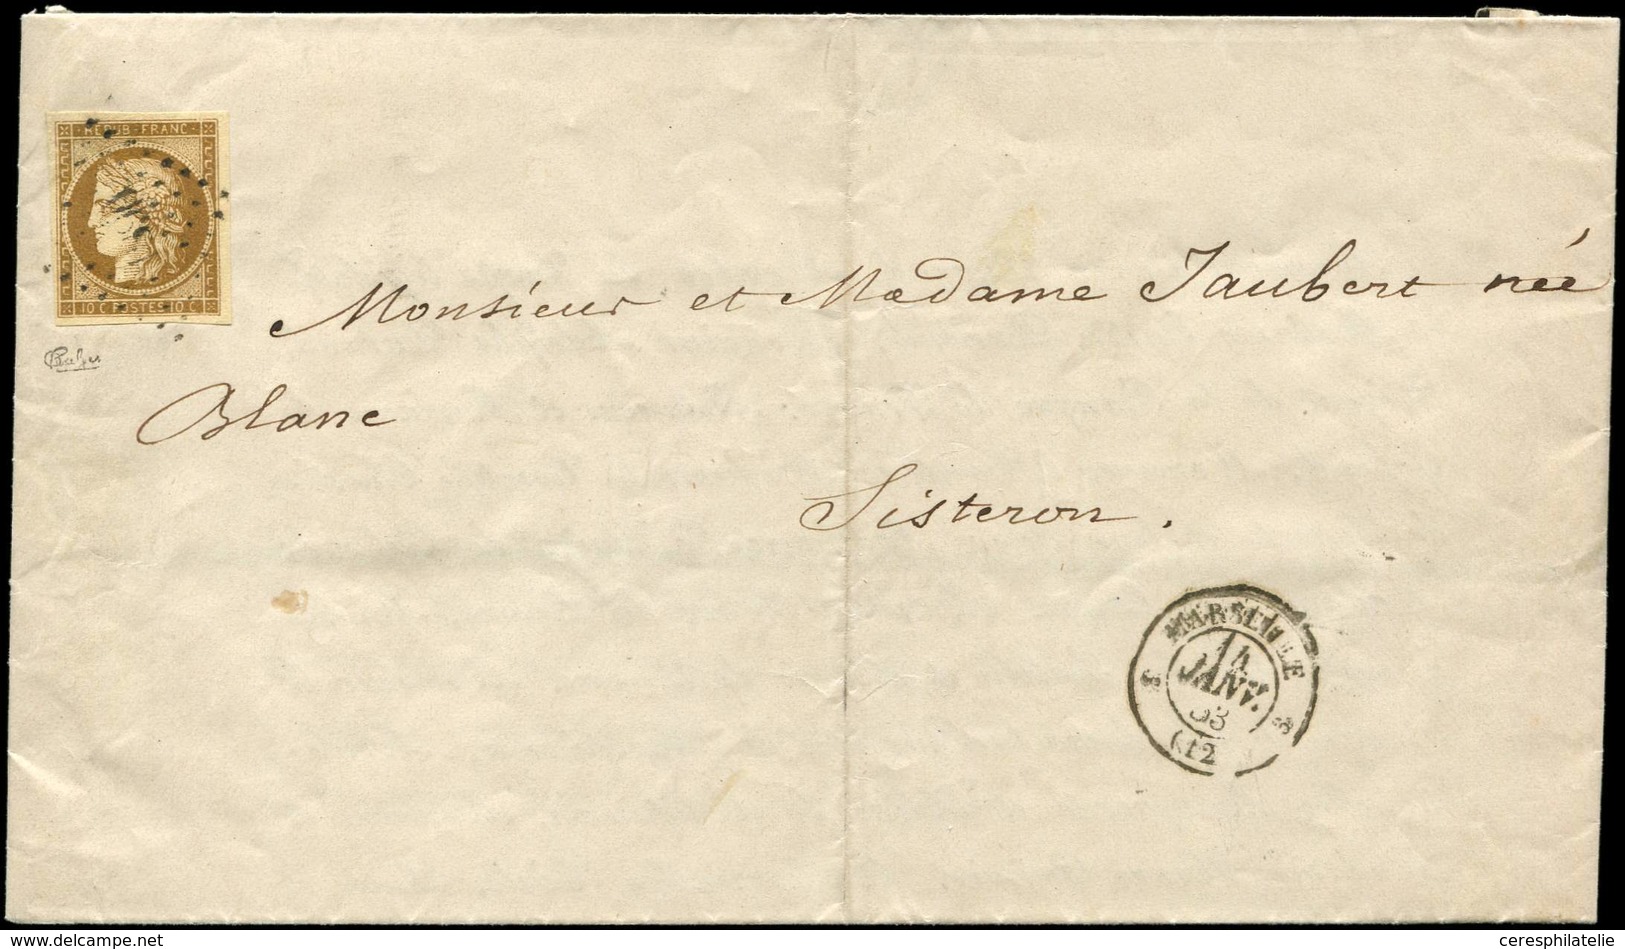 REPUB·FRANC·
10 C POSTES 10 C
Monsieur et Madame Jaubert née
Blanc
Sisteron.
MARSEILLE
14
JANV.
53
(12
www.delcampe.net
ceresphilatelie